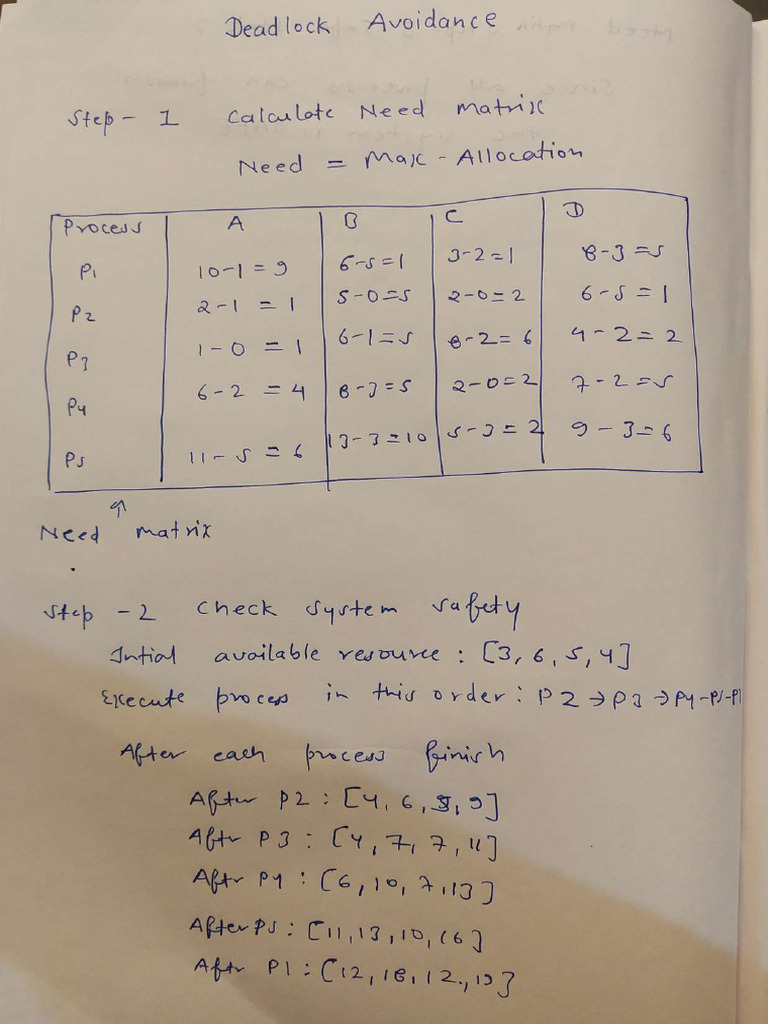 Deadlock Avoidance
Step - 1 Calculate Need matrix
Need = Max - Allocation
Process A B C D
P1 10-1=9 6-5=1 3-2=1 8-3=5
P2 2-1=1 5-0=5 2-0=2 6-5=1
P3 1-0=1 6-1=5 8-2=6 4-2=2
P4 6-2=4 8-3=5 2-0=2 7-2=5
P5 11-5=6 13-3=10 5-3=2 9-3=6
Need matrix
Step - 2 Check system safety
Intial available resource : [3, 6, 5, 4]
Execute process in this order : P2 → P3 → P4-P5-P1
After each process finish
After P2 : [4, 6, 5, 9]
Aftr P3 : [4, 7, 7, 11]
Aftr P4 : [6, 10, 7, 13]
After P5 : [11, 13, 10, 16]
Aftr P1 : [12, 18, 12, 19]